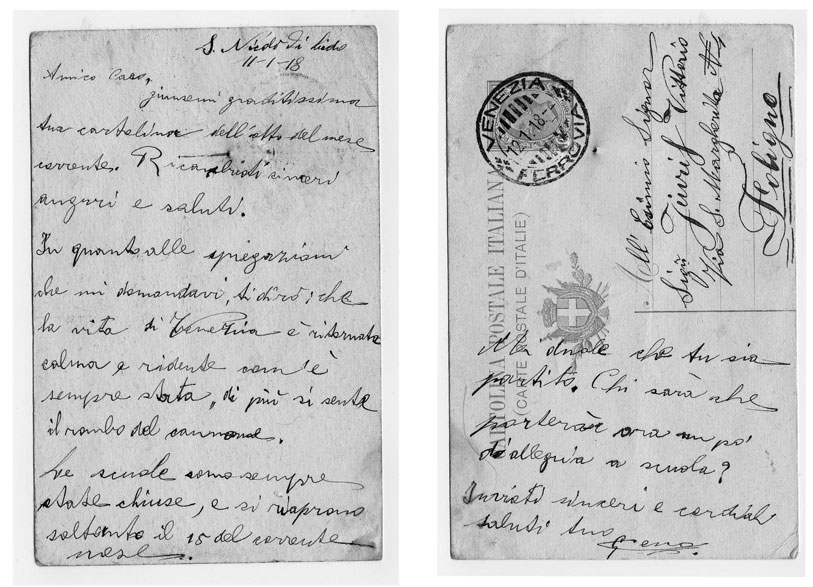 S. Nicolò di Lido
11-1-18
Amico Caro,
giunsemi graditissima
tua cartolina dell'otto del mese
corrente. Ricambioti sinceri
auguri e saluti.
In quanto alle spiegazioni
che mi domandavi, ti dirò; che
la vita di Venezia è ritornata
calma e ridente com'è
sempre stata, di più si sente
il rombo del cannone.
Le scuole sono sempre
state chiuse, e si riaprono
soltanto il 15 del corrente
mese.
VENEZIA
12.1.18
FERROVIA
CARTOLINA POSTALE ITALIANA
(CARTE POSTALE D'ITALIE)
All' Esimio Signor
Sigr Vittorio
Via S. Margherita N 4
Foligno
Mi duole che tu sia
partito. Chi sarà che
porterà ora un po'
d'allegria a scuola?
Inviati sinceri e cordiali
saluti tuo